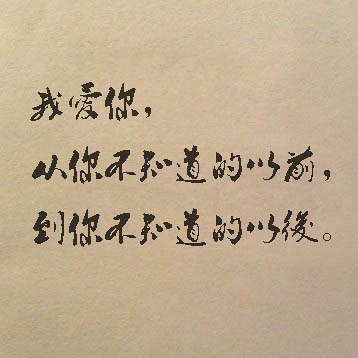 我愛你，
从你不知道的以前，
到你不知道的以後。